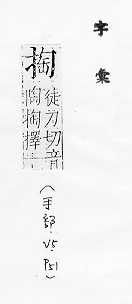 字彙
掏
徒刀切音
陶掏擇
(手部.V5.P51)